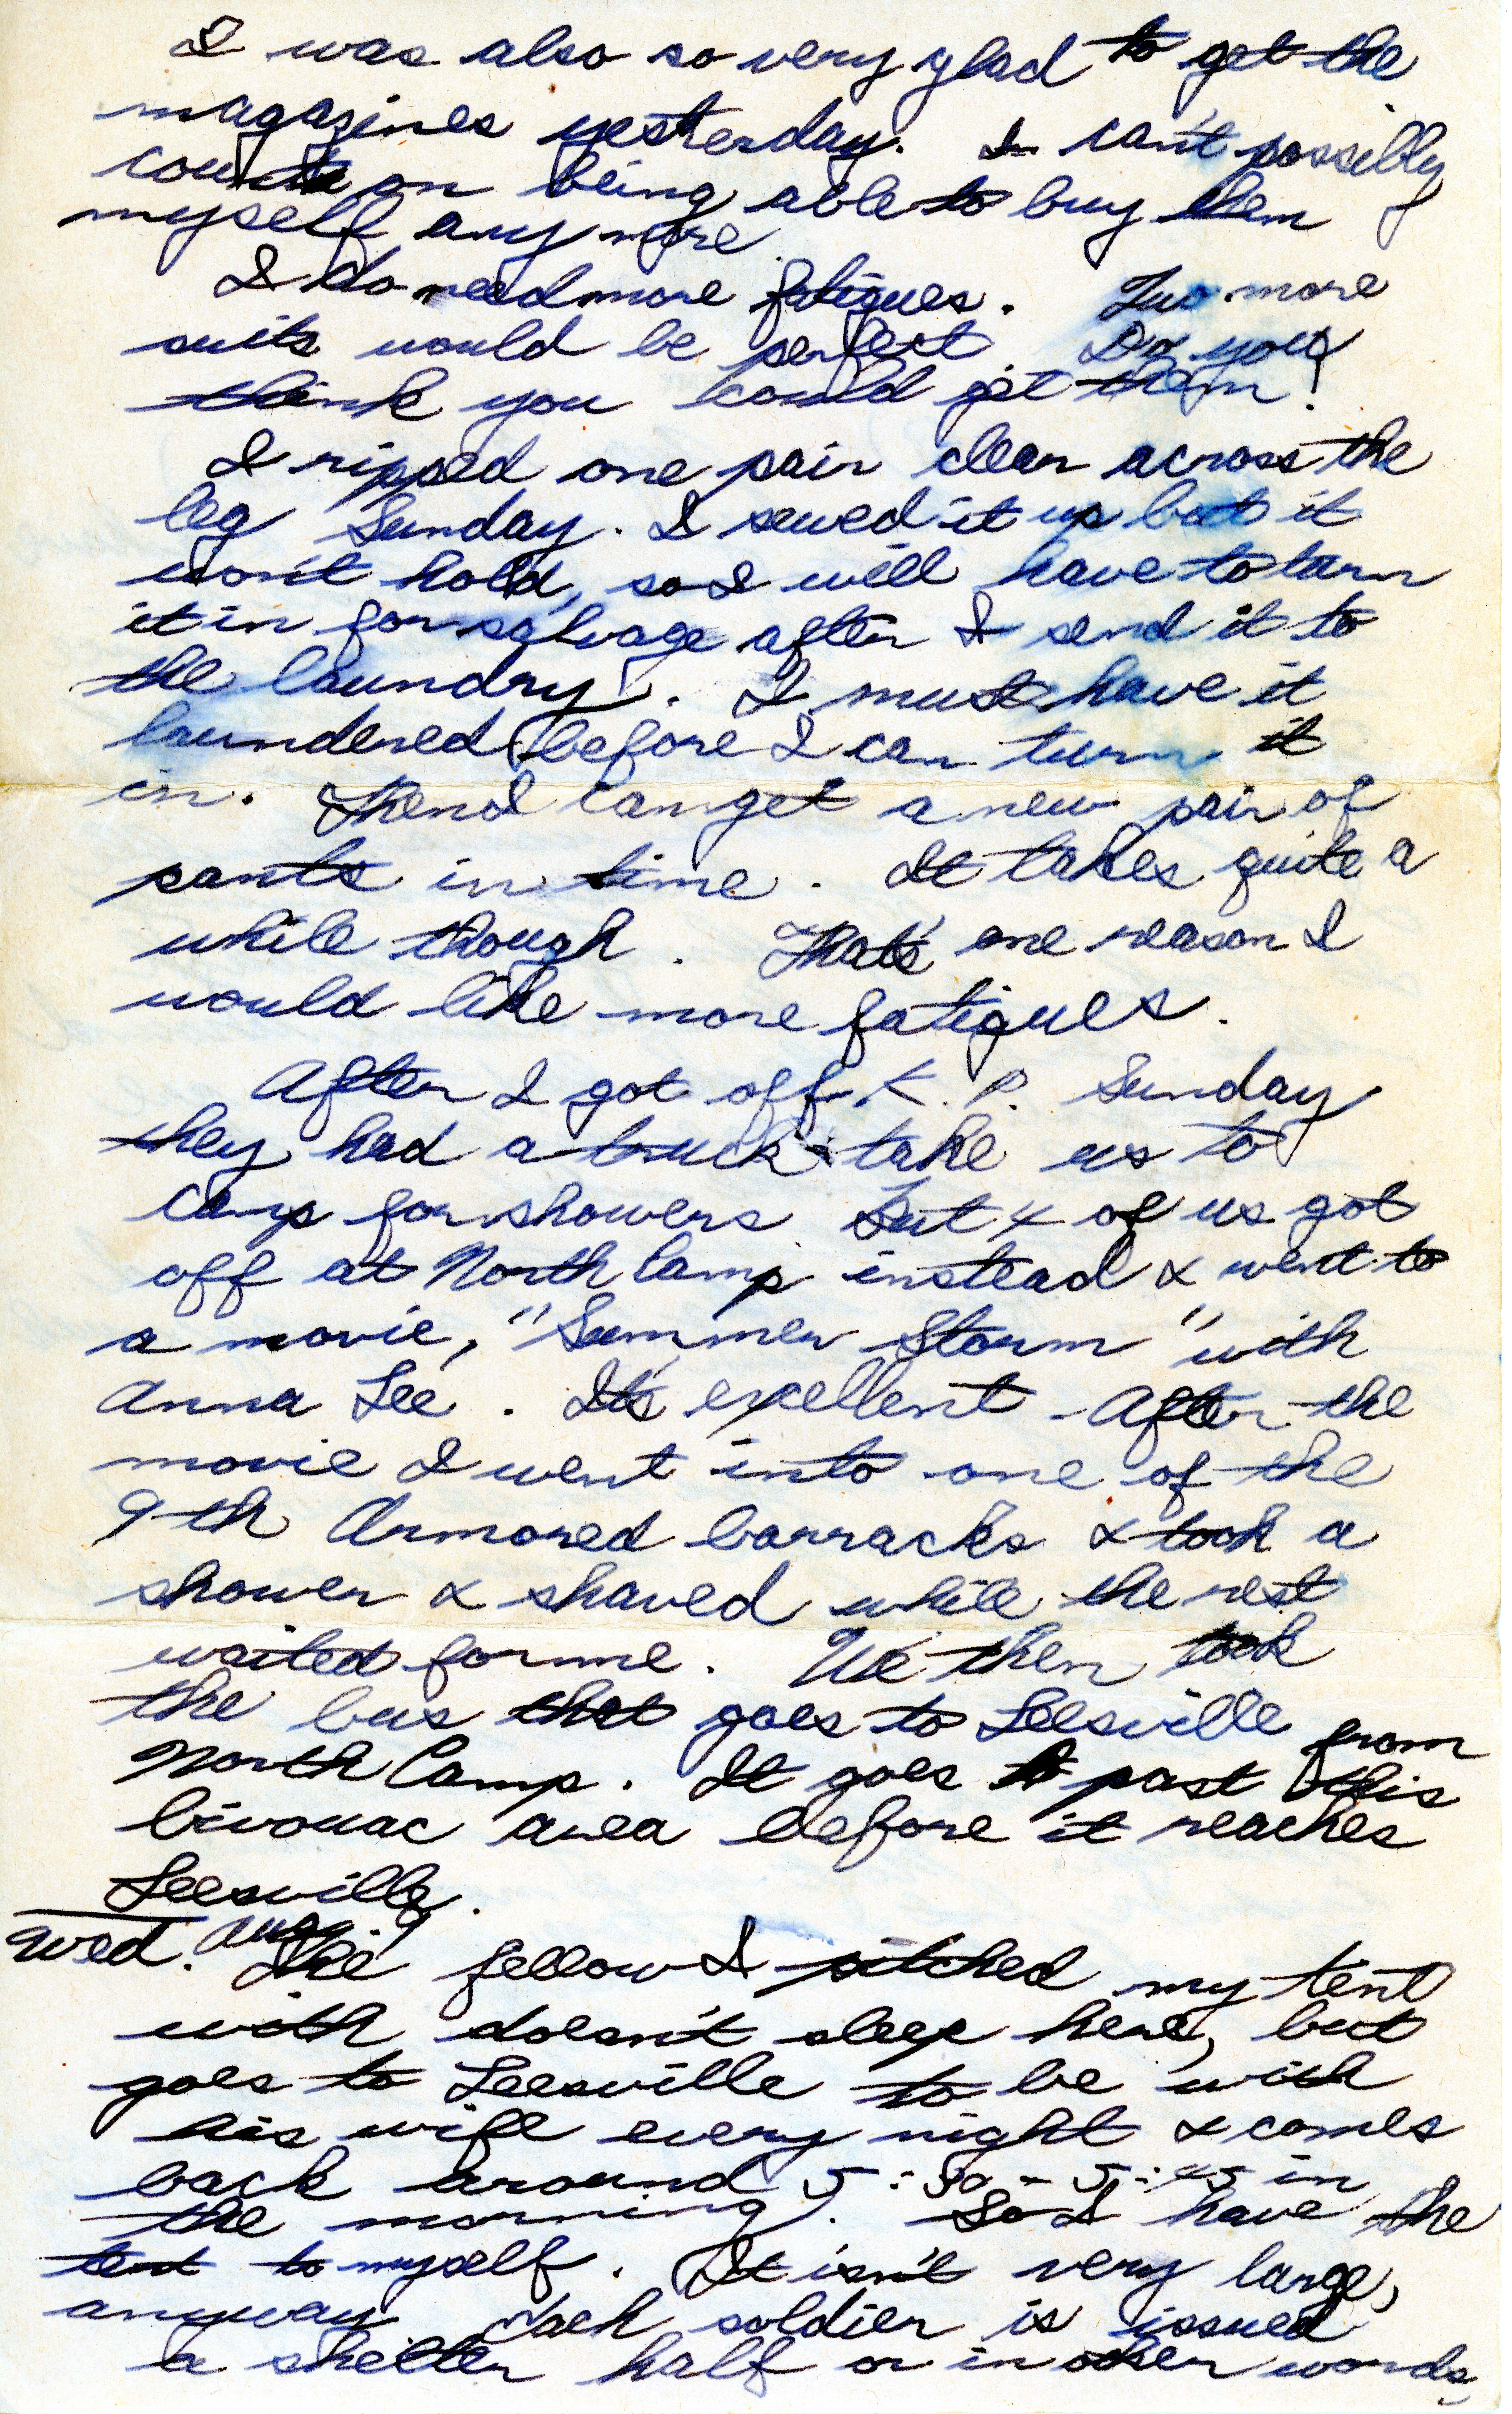 I was also so very glad to get the
magazines yesterday. I can't possibly
count on being able to buy them
myself any more.
I do need more fatigues. Two more
suits would be perfect. Do you
think you could get them?
I ripped one pair clear across the
leg Sunday. I sewed it up but it
won't hold, so I will have to turn
it in for salvage after I send it to
the laundry. I must have it
laundered before I can turn it
in. Then I can get a new pair of
pants in time. It takes quite a
while though. That's one reason I
would like more fatigues.
After I got off K.P. Sunday
they had a truck take us to
camp for showers but 4 of us got
off at North Camp instead & went to
a movie, "Summer Storm" with
Anna Lee. It's excellent. After the
movie I went into one of the
9th Armored barracks & took a
shower & shaved while the rest
waited for me. We then took
the bus that goes to Leesville from
North Camp. It goes past this
bivouac area before it reaches
Leesville.
Wed. Aug. 9
The fellow I pitched my tent
with doesn't sleep here, but
goes to Leesville to be with
his wife every night & comes
back around 5:30 - 5:45 in
the morning. So I have the
tent to myself. It isn't very large,
anyway. Each soldier is issued
a shelter half or in other words,